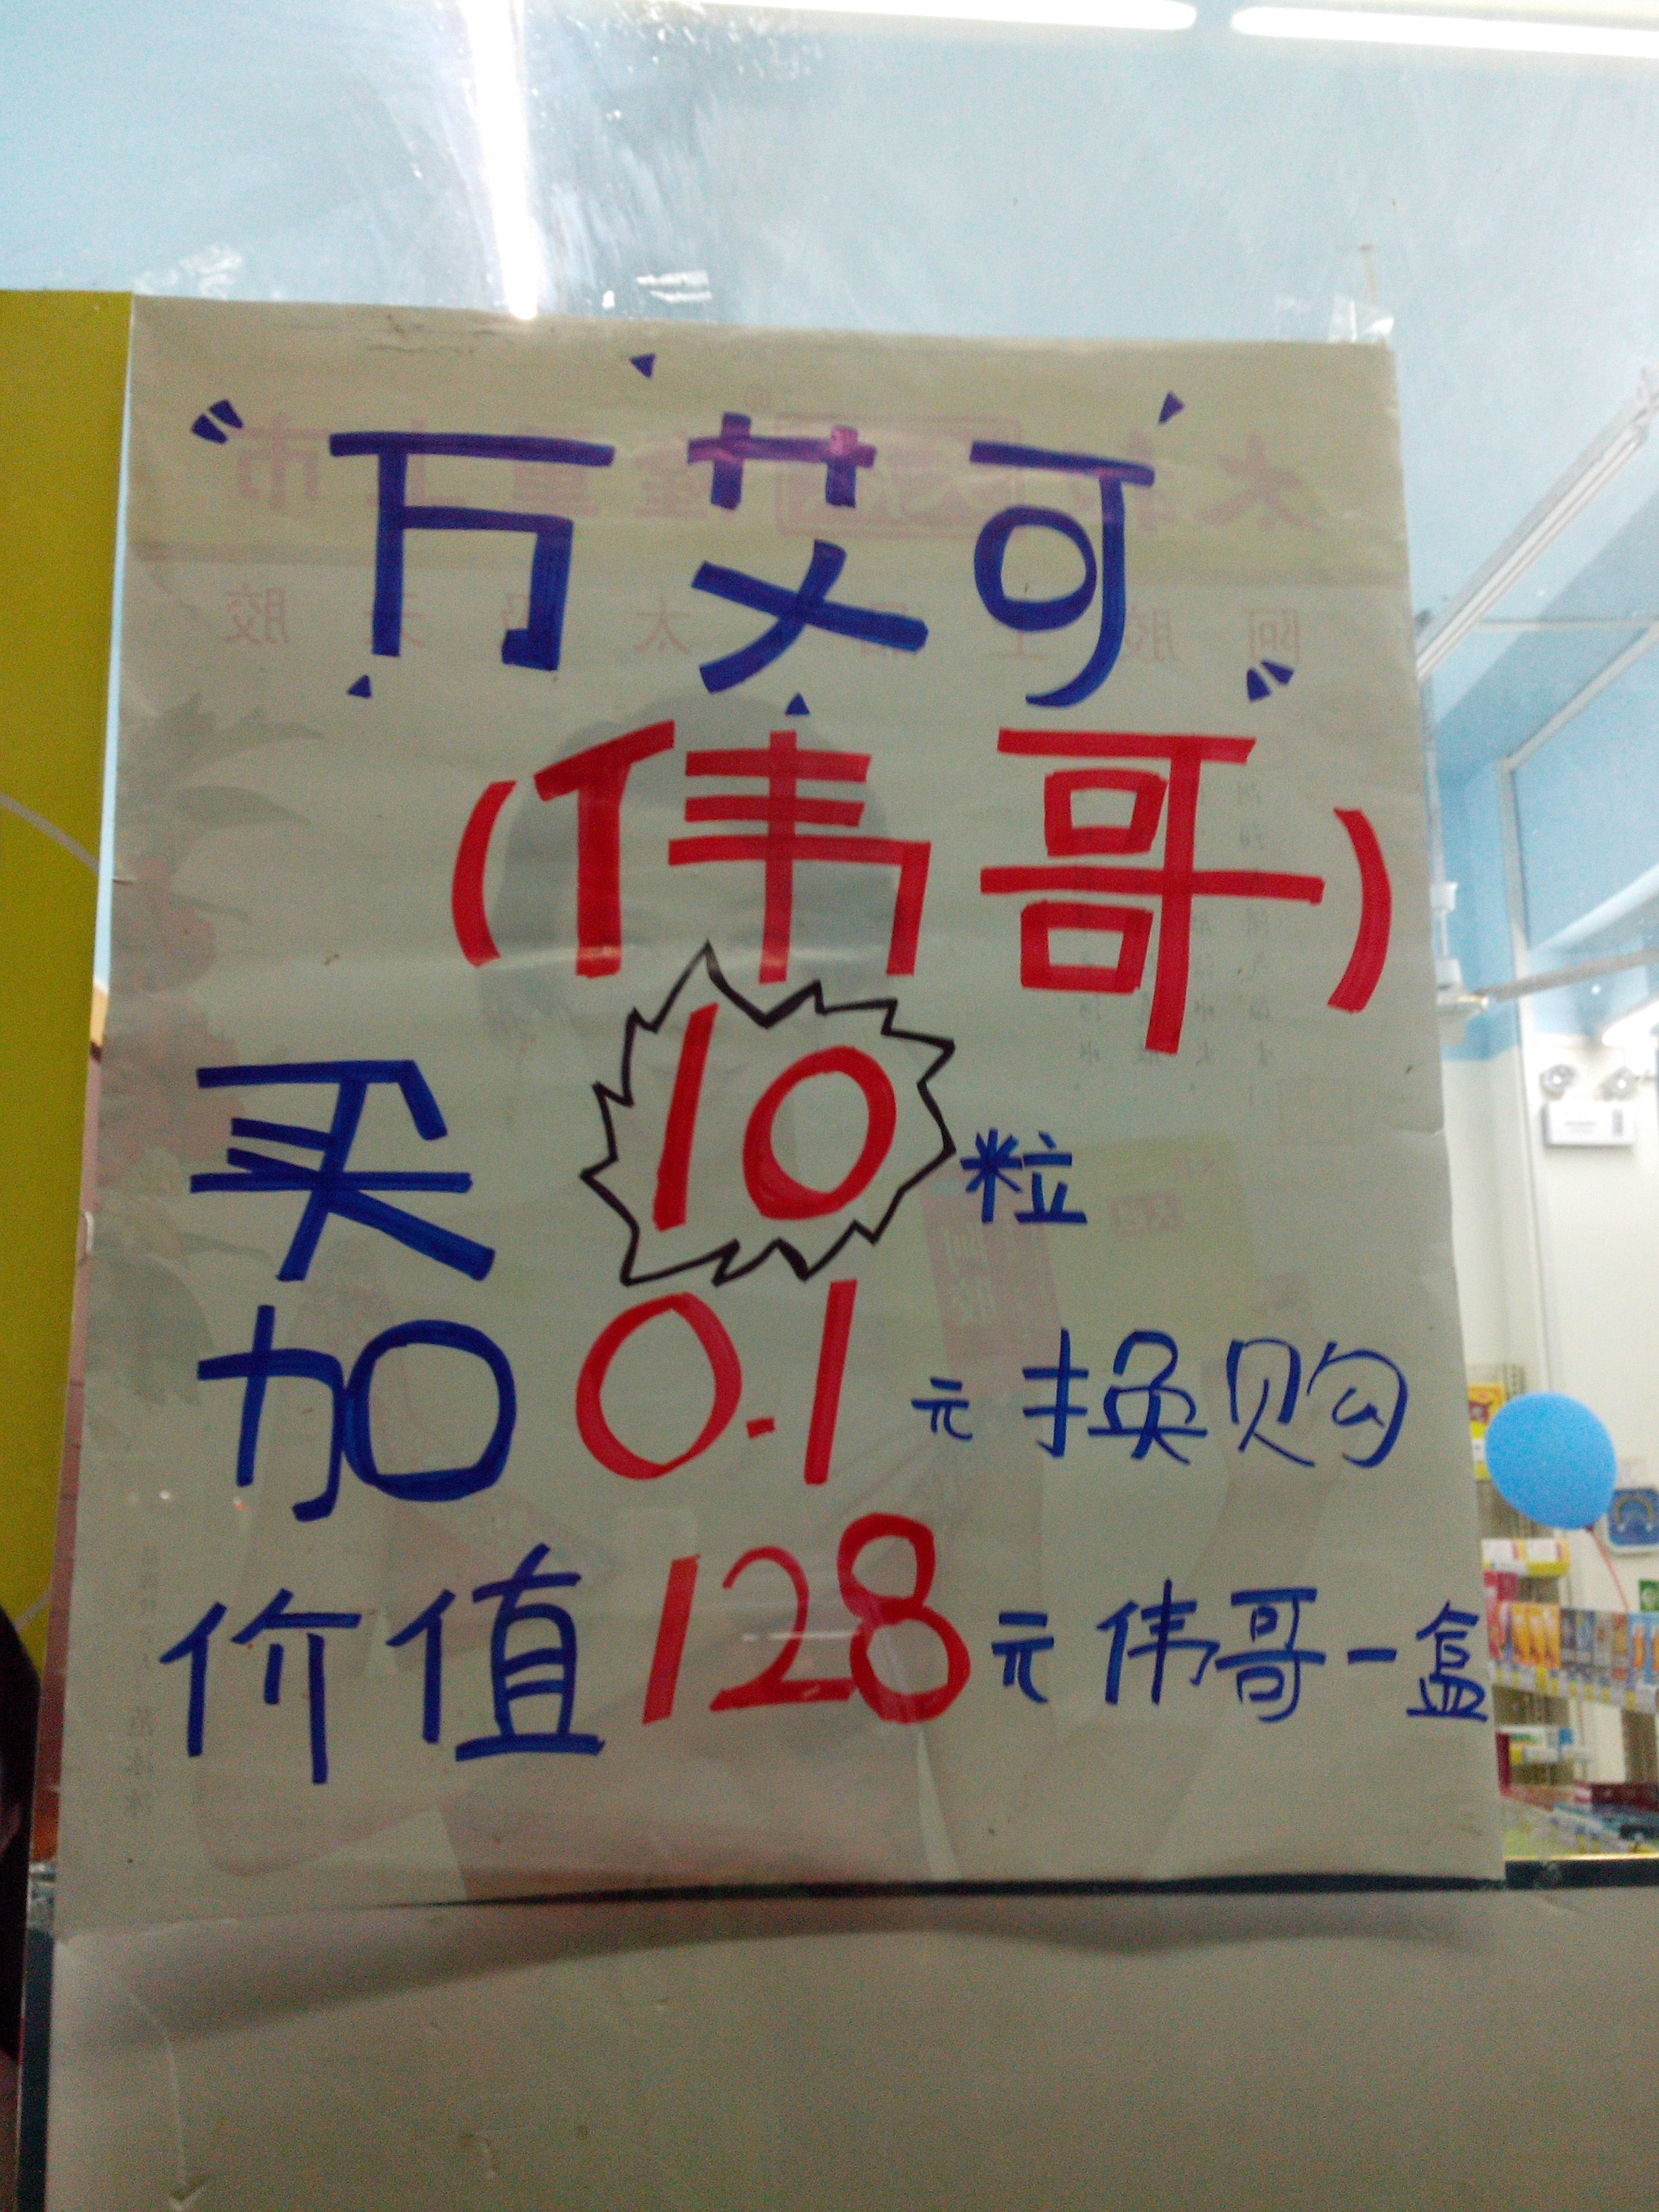 "万艾可"
(伟哥)
买10粒
加0.1元换购
价值128元伟哥一盒